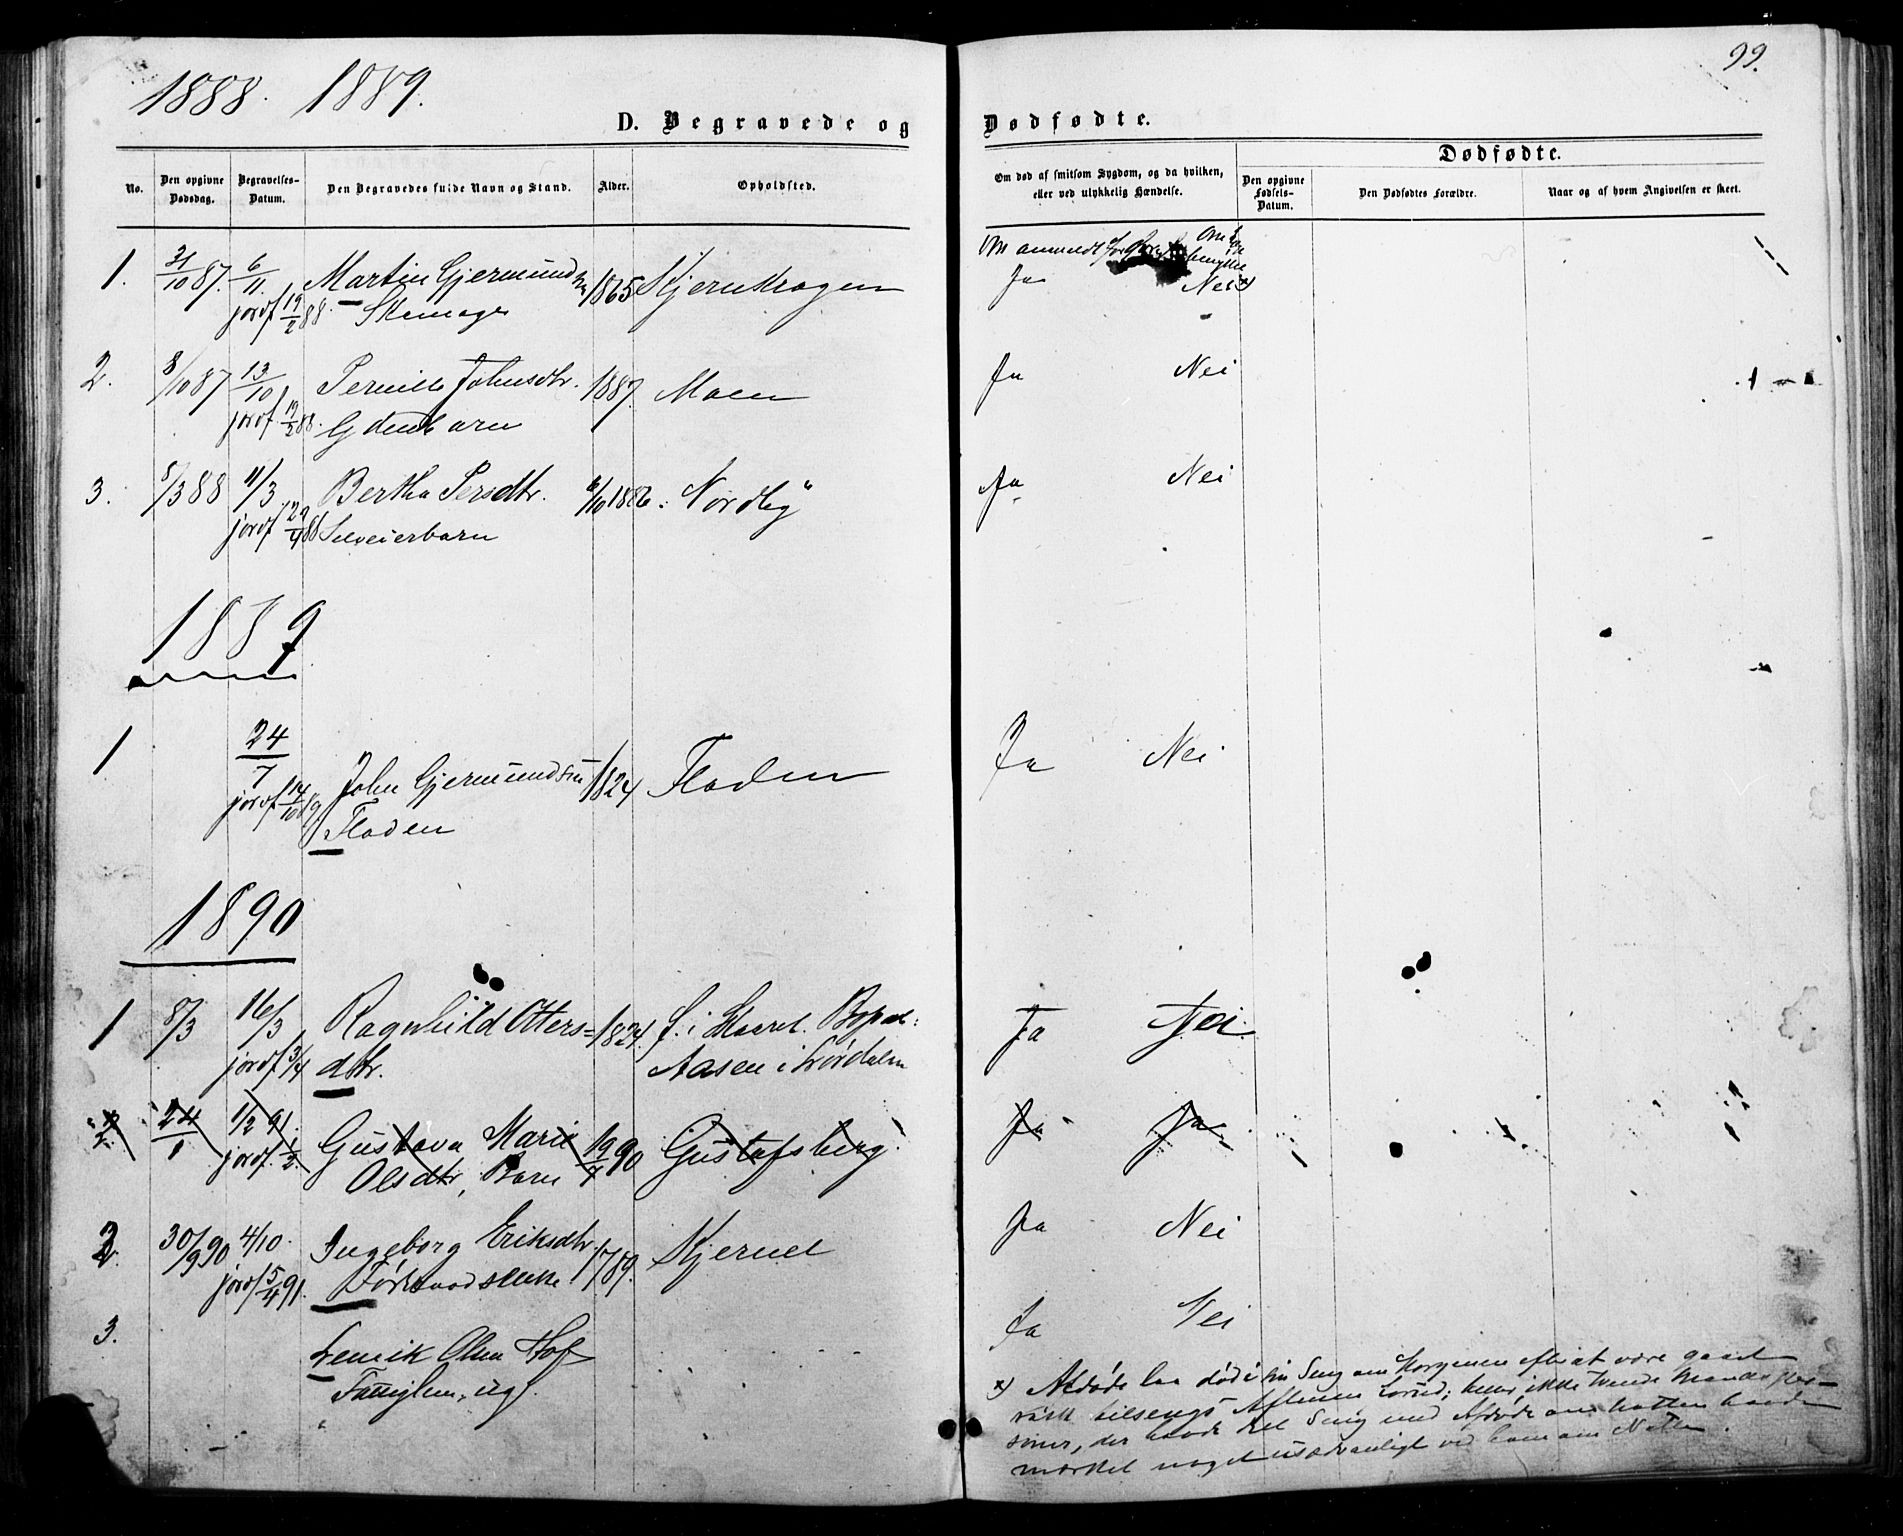 1888. 1889.
99.
D. Begravede og Dødfødte.
No.
Den opgivne Dødsdag.
Begravelses-Datum.
Den Begravedes fulde Navn og Stand.
Alder.
Opholdsted.
Om død af smitsom Sygdom, og da hvilken, eller ved ulykkelig Hændelse.
Dødfødte.
Den opgivne Fødsels-Datum.
Den Dødfødtes Forældre.
Naar og af hvem Angivelsen er skeet.
Om anmeldt for
1. 31/10 87. 6/11 Martin Gjermunds 1865 Kjernskogen Ja Nei x)
jordf 19/2 88.
2. 8/10 87 13/10 Pernille Johnsdtr. 1887. Moen Ja Nei
jordf. 19/2 88.
3. 5/3 88 11/3 Bertha Persdtr. 6/10 1886. "Nordby" Ja Nei
jordf 29/4 88 Selveierbarn
1889
1 24/7 John Gjermundsen 1824 Floden Ja Nei
jordf 14/10 89 Floden
1890
1 8/3 16/3 Ragnhild Otters= 1824. f. i Bopæl: Ja Nei
jordf 3/4 dtr. Aasen i
2. 24/1 1/2 91. Gustava Marie 19/4 90 Gustafsberg. Ja Ja
jordf. 1/2 Olsdtr, Barn
2. 30/9 90 4/10. Ingeborg Eriksdtr 1789. Kjernet Ja Nei
jordf 5/4 91.
3. Henrik Olsen Hof Ja Nei
Fattiglem, ugf.
x) Afdøde laa død i sin Seng om Morgenen efter at være gaaet
rask tilsengs Aftenen forud; hans ikke
der havde Seng med Afdøde om Natten havde
mærket noget usædvanligt ved ham om Natten.